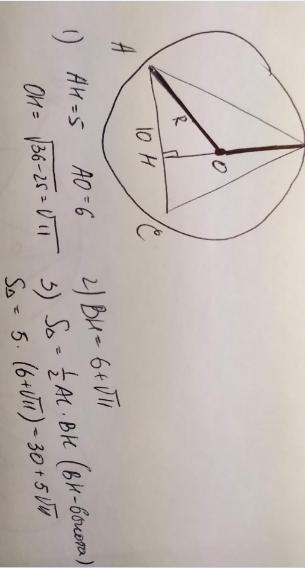 A
R
O
10 H
C
1) AH=5 AO=6
OH= √36-25=√11
2) BH=6+√11
3) S△ = 1/2 AC·BH (BH-высота)
S△ = 5·(6+√11)=30+5√11